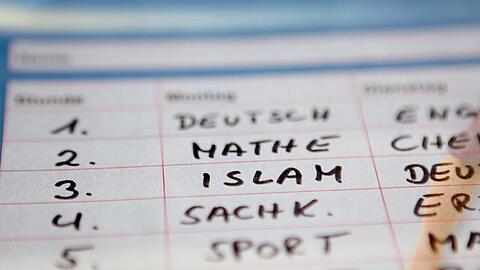 Stunde Montag Dienstag
1. DEUTSCH ENG
2. MATHE CHE
3. ISLAM DEU
4. SACHK. ER
5. SPORT MA